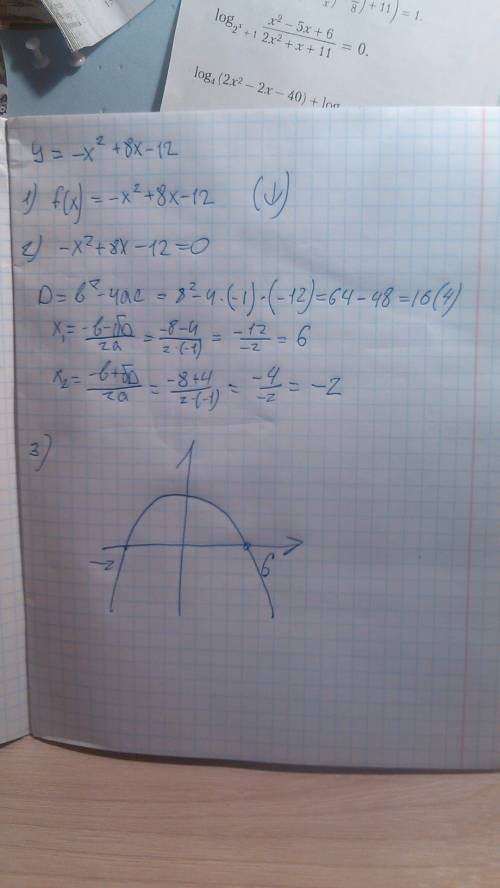 x) 8) + 11) = 1.
log_{2^x+1} \frac{x² − 5x + 6}{2x² + x + 11} = 0.
log₄(2x² − 2x − 40) + log
y = -x² + 8x - 12
1) f(x) = -x² + 8x - 12 (↓)
2) -x² + 8x - 12 = 0
D = b² - 4ac = 8² - 4 · (-1) · (-12) = 64 - 48 = 16 (4)
x₁ = \frac{-b-√D}{2a} = \frac{-8-4}{2·(-1)} = \frac{-12}{-2} = 6
x₂ = \frac{-b+√D}{2a} = \frac{-8+4}{2·(-1)} = \frac{-4}{-2} = -2
3)
-2 6